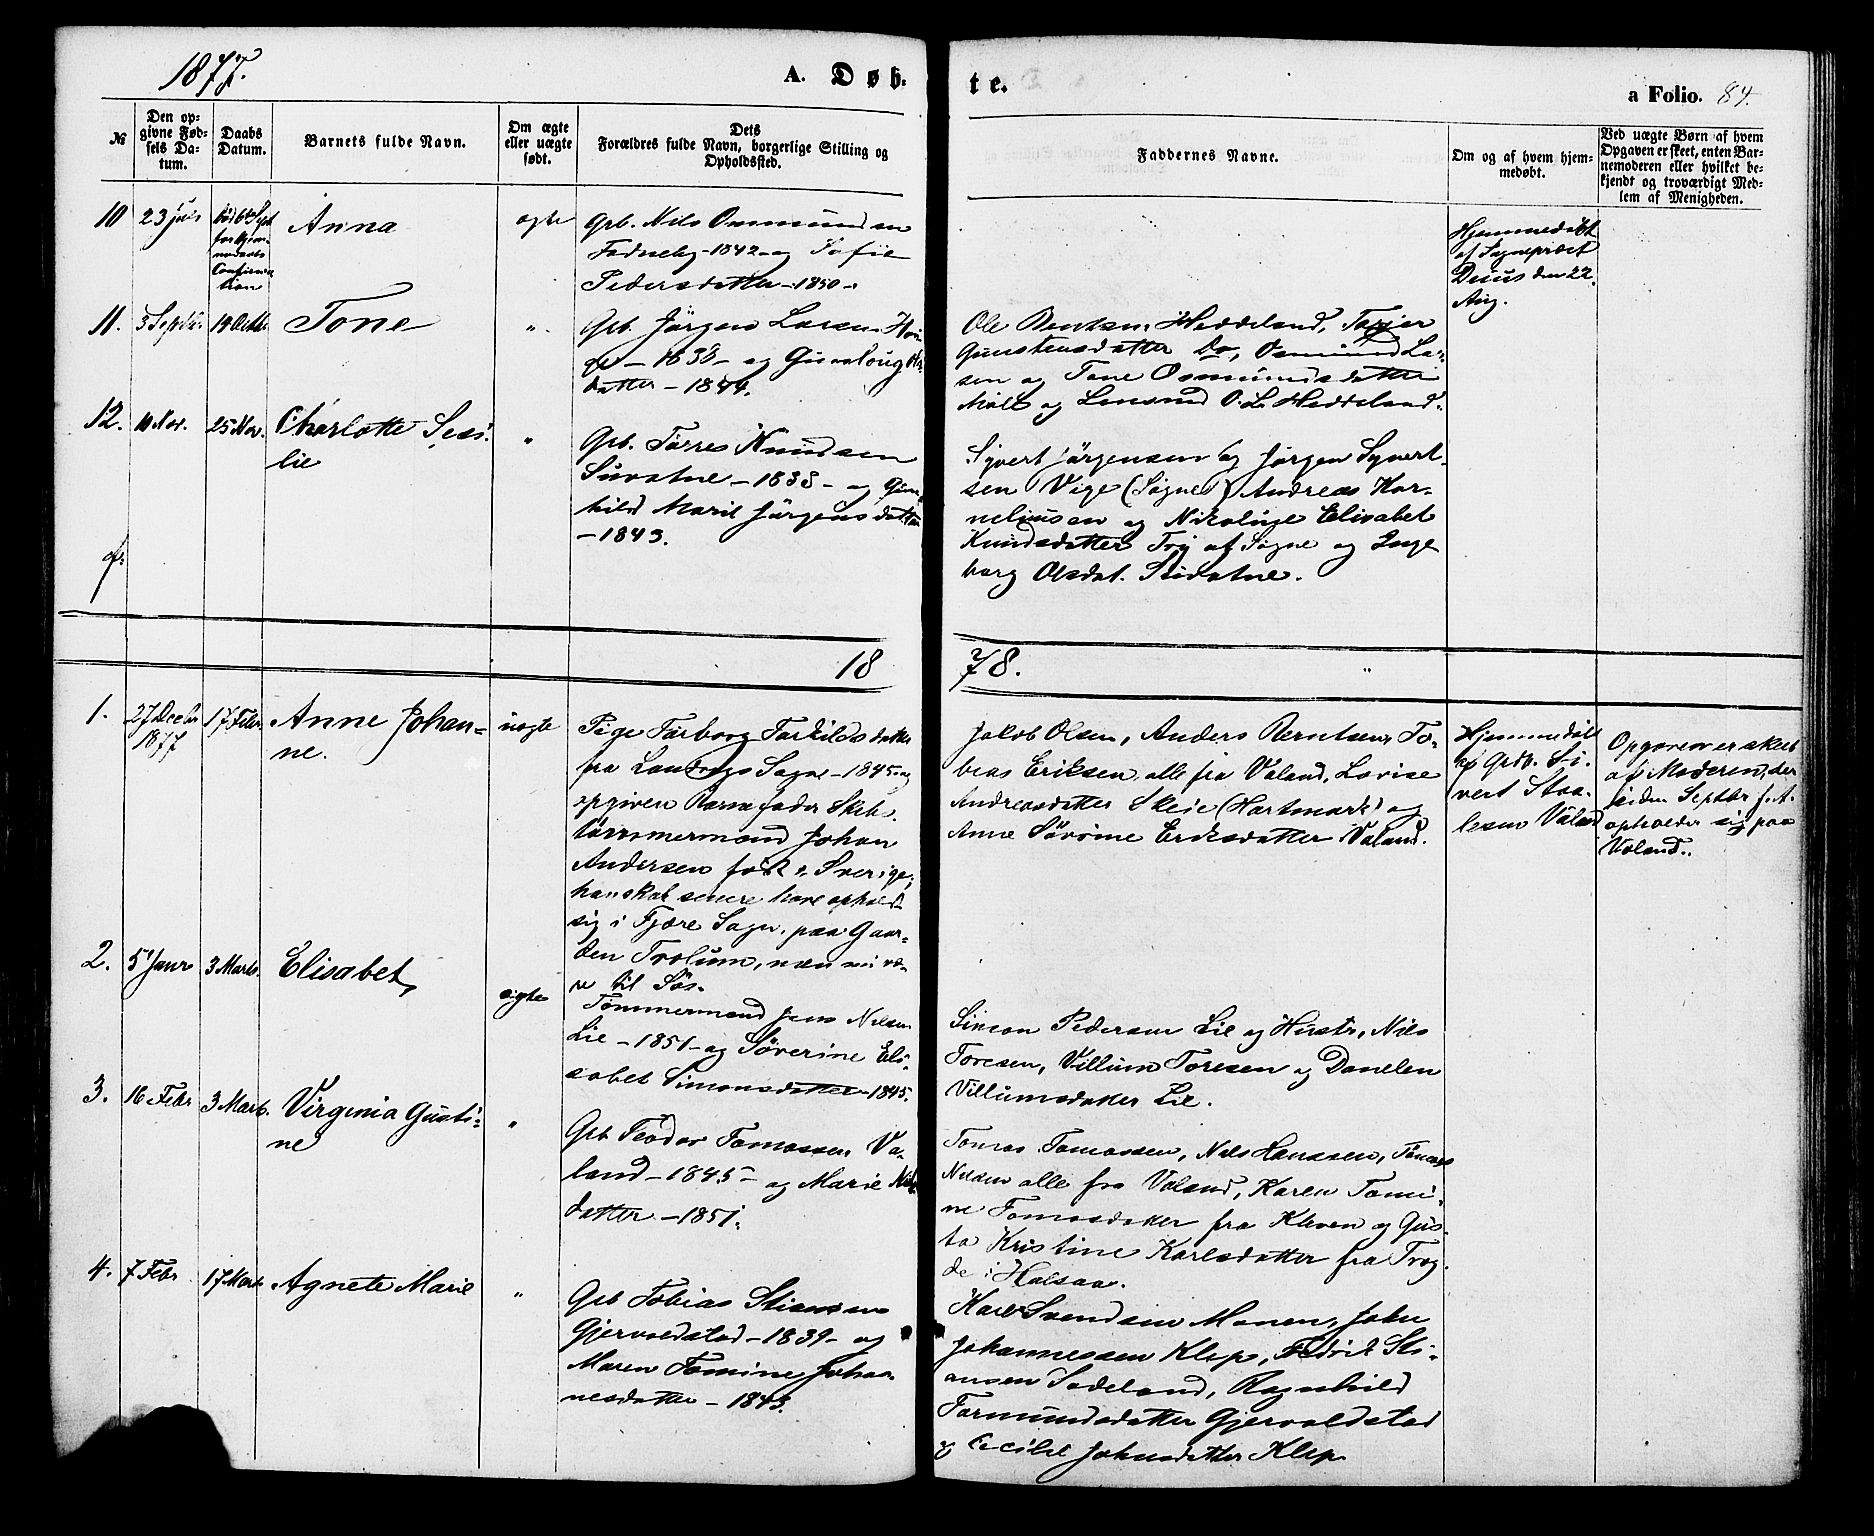 1877.
A. Døb-
te.
a Folio. 84.
№
Den op-
givne Fød-
sels Da-
tum.
Daabs
Datum.
Barnets fulde Navn.
Om ægte
eller uægte
født.
Dets
Forældres fulde Navn, borgerlige Stilling og
Opholdssted.
Faddernes Navne.
Om og af hvem hjem-
medøbt.
Ved uægte Børn af hvem
Opgaven er skeet, enten Bar-
nemoderen eller hvilket be-
kjendt og troværdigt Med-
lem af Menigheden.
10
23 juli
Anna
ægte
Grb. Nils Osmundsen
Fodneby - 1842 - og Sofie
Pedersdatter - 1850 -
Hjemmedøbt
af Sognepræst
Deuus den 22
Aug.
11.
5 Septbr.
14 Octbr.
Tone
"
Grb. Jörgen Larsen
- 1838 - og
datter - 1844.
Ole Bentsen Heddeland,
Gunstensdatter Do, Osmund La-
sen og Tone Osmundsdatter
og Lensmd O. L. Heddeland.
12.
11 Nov.
25 Nov.
Charlotte Sesi-
lie
"
Grb. Tørres Knudsen
- 1838 - og Gun-
hild Marie Jörgensdatter
- 1843.
Syvert Jörgensen og Jörgen Syvert-
sen Vige (Søgne) Andreas Kor-
neliussen og Nikoline Elisabet
Knudsdatter Try af Søgne og Inge
borg Olsdat.
1878.
1.
27 Decbr
1877
17 Febr.
Anne Johan-
ne.
uægte
Pige Tarborg Tarkildsdatter
fra Sogne - 1845 og
opgiven Barnefader Skibs-
tømmermand Johan
Andersen født i Sverige;
han skal senere have opholdt
sig i Fjære Sogn, paa Gaar-
den Trolum, men nu væ-
re til Søs.
Jakob Olsen, Anders Berntsen, To-
bias Eriksen, alle fra Valand, Lovise
Andreasdatter Skeie (Hartmark) og
Anne Sörine Eriksdatter Valand.
Hjemmedøbt
af Grdb. Si-
vert Staa-
lesen Valand
Opgaven er skeet
af Moderen, der
siden Septbr f. A.
opholder sig paa
Valand.
2.
5 Janr
3 Marts.
Elisabet,
ægte
Tømmermand Jens Nilsen
Lie - 1851 - og Söverine Eli-
sabet Simonsdatter - 1845.
Simon Pedersen Lie og Hustr, Nils
Toresen, Villum Toresen og Danelen
Villumsdatter Lie.
3.
16 Febr
3 Marts.
Virginia Gusti-
ne
"
Grb Teodor Tomassen Va-
land - 1845 - og Marie Nils-
datter - 1851.
Tomas Tomassen, Nils Hanssen, Tomas
Nilsen alle fra Valand, Karen Tomi-
ne Tomasdatter fra Kleven og Gus-
ta Kristine Karlsdatter fra Trog-
de i Halsaa.
4.
7 Febr
17 Marts
Agnete Marie
"
Grb Tobias Stiansen
Gjervoldstad - 1839 - og
Maren Tomine Johan-
nesdatter - 1843.
Karl Svendsen Monen, John
Johannessen Klep, Fedrik Sti-
ansen Sodeland, Ragnhild
Tarmundsdatter Gjervoldstad
og Cecilie Johnsdatter Klep